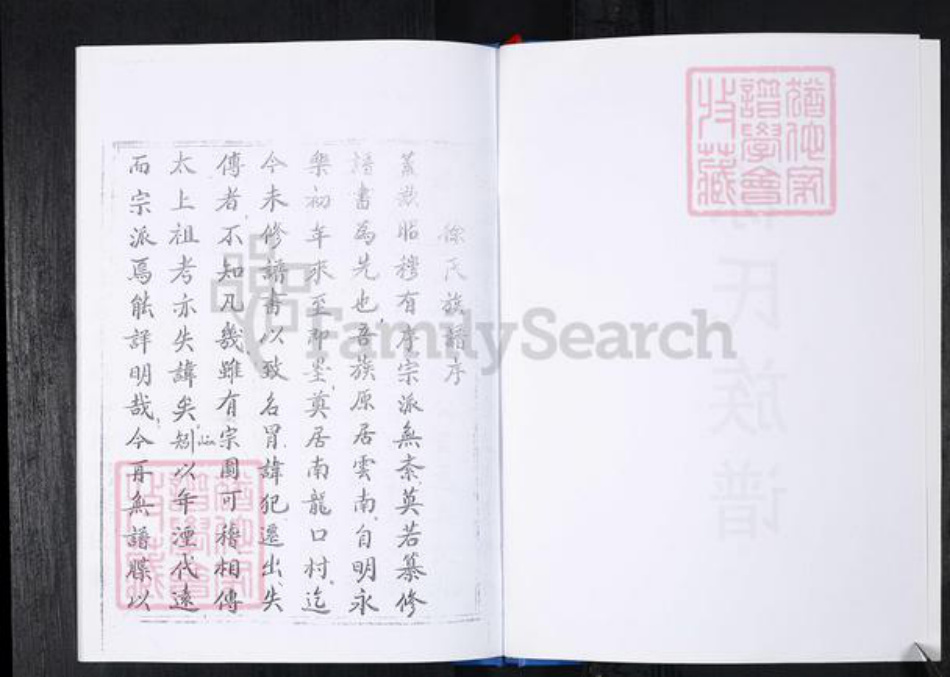 徐氏族譜序
蓋欲昭穆有序宗派無紊莫若纂修
譜書為先也吾族原居雲南自明永
樂初年來至即墨奠居南龍口村迄
今未修譜書以致名冒諱犯遷出失
傳者不知凡幾雖有宗圖可稽相傳
太上祖考亦失諱矣矧以年湮代遠
而宗派焉能詳明哉今再無譜牒以
FamilySearch
氏族谱
譜學會
收藏